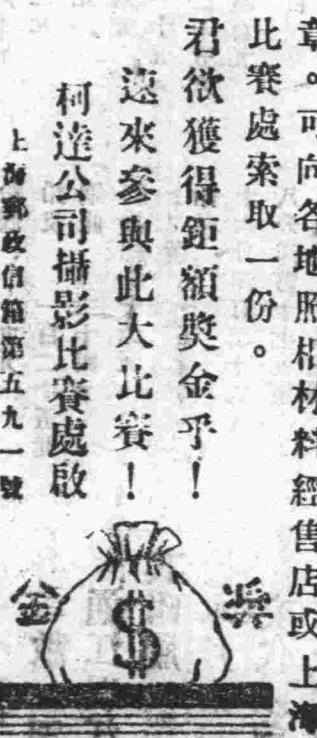 章。可向各地照相材料經售店或上海
比賽處索取一份。
君欲獲得鉅額獎金乎！
速來參與此大比賽！
柯達公司攝影比賽處啟
上海郵政信箱第五九一號
獎金
$